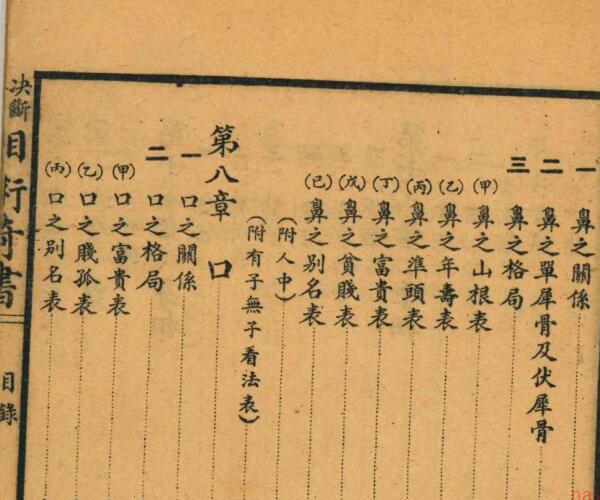 一 鼻之關係
二 鼻之單犀骨及伏犀骨
三 鼻之格局
(甲) 鼻之山根表
(乙) 鼻之年壽表
(丙) 鼻之準頭表
(丁) 鼻之富貴表
(戊) 鼻之貧賤表
(己) 鼻之别名表
(附人中)
(附有子無子看法表)
第八章 口
一 口之關係
二 口之格局
(甲) 口之富貴表
(乙) 口之賤孤表
(丙) 口之别名表
决斷
奇書
目錄